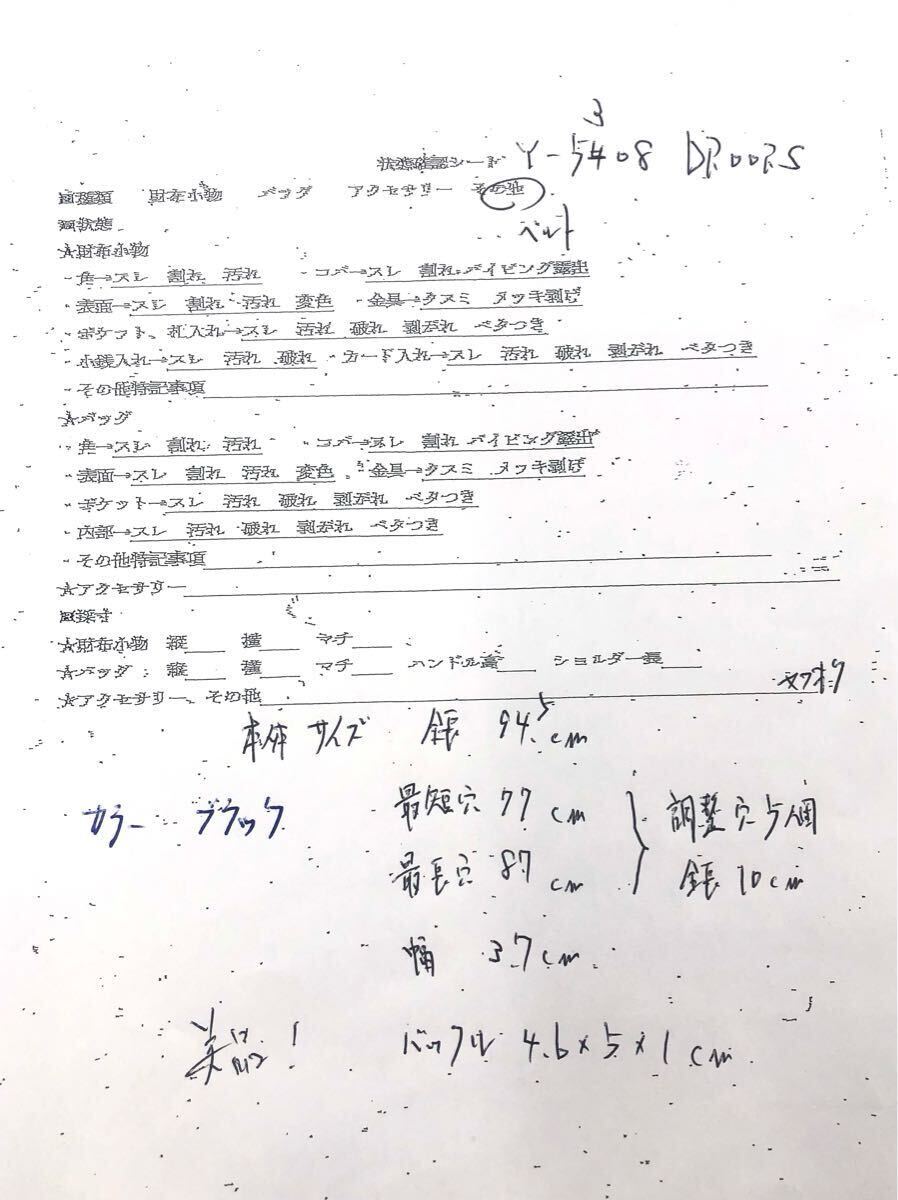 3
状態確認シート Y-5408 DROORS
■種類 財布小物 バッグ アクセサリー その他
ベルト
■状態
★財布小物
・角→スレ 割れ 汚れ ・コバ→スレ 割れ パイピング露出
・表面→スレ 割れ 汚れ 変色 ・金具→クスミ メッキ剥げ
・ポケット、札入れ→スレ 汚れ 破れ 剥がれ ベタつき
・小銭入れ→スレ 汚れ 破れ ・カード入れ→スレ 汚れ 破れ 剥がれ ベタつき
・その他特記事項
★バッグ
・角→スレ 割れ 汚れ ・コバ→スレ 割れ パイピング露出
・表面→スレ 割れ 汚れ 変色 ・金具→クスミ メッキ剥げ
・ポケット→スレ 汚れ 破れ 剥がれ ベタつき
・内部→スレ 汚れ 破れ 剥がれ ベタつき
・その他特記事項
★アクセサリー
■採寸
★財布小物 縦 横 マチ
★バッグ:縦 横 マチ ハンドル高 ショルダー長
★アクセサリー、その他 ヤフオク
本体サイズ 全長 94.5cm
カラー ブラック 最短穴 77cm 調整穴5個
最長穴 87cm 全長10cm
幅 3.7cm
美品! バックル 4.6×5×1cm